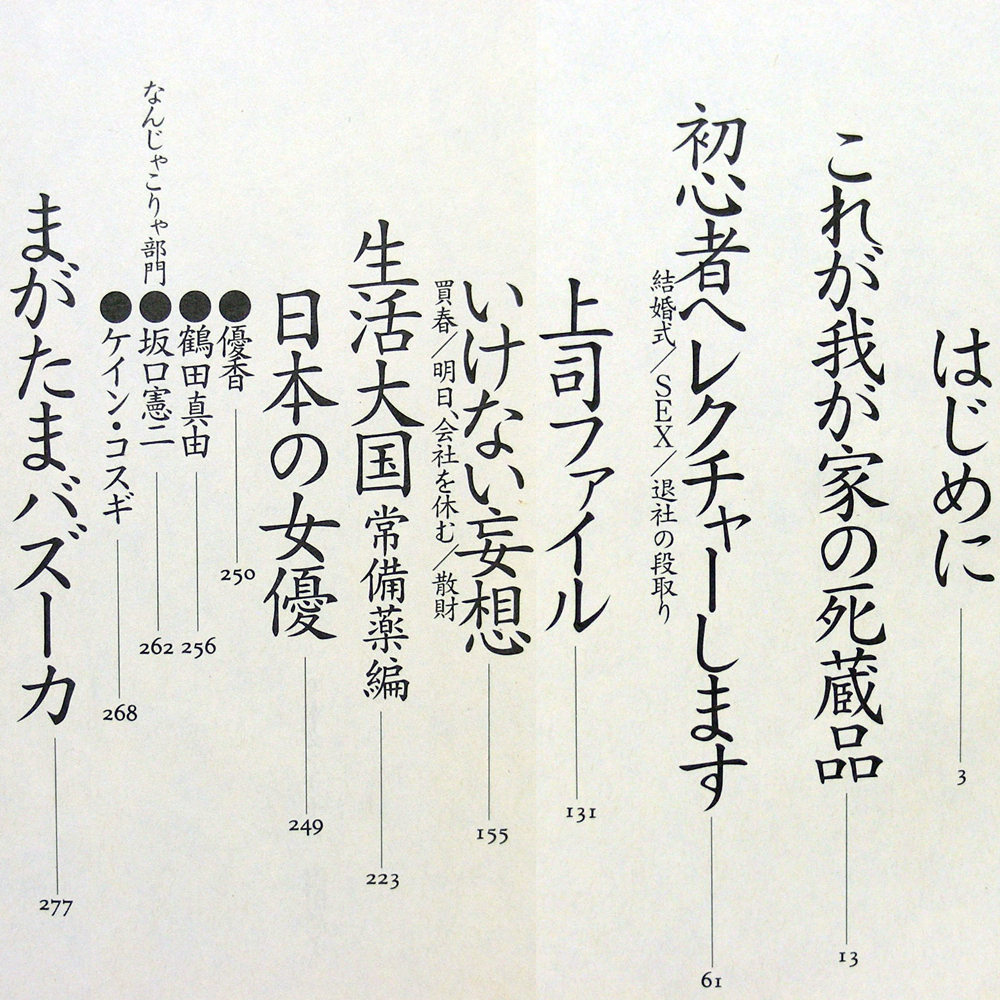 はじめに
3
これが我が家の死蔵品
13
初心者へレクチャーします
結婚式／SEX／退社の段取り
61
上司ファイル
131
いけない妄想
買春／明日、会社を休む／散財
155
生活大国 常備薬編
223
日本の女優
249
なんじゃこりゃ部門
●優香
250
●鶴田真由
256
●坂口憲二
262
●ケイン・コスギ
268
まがたまバズーカ
277